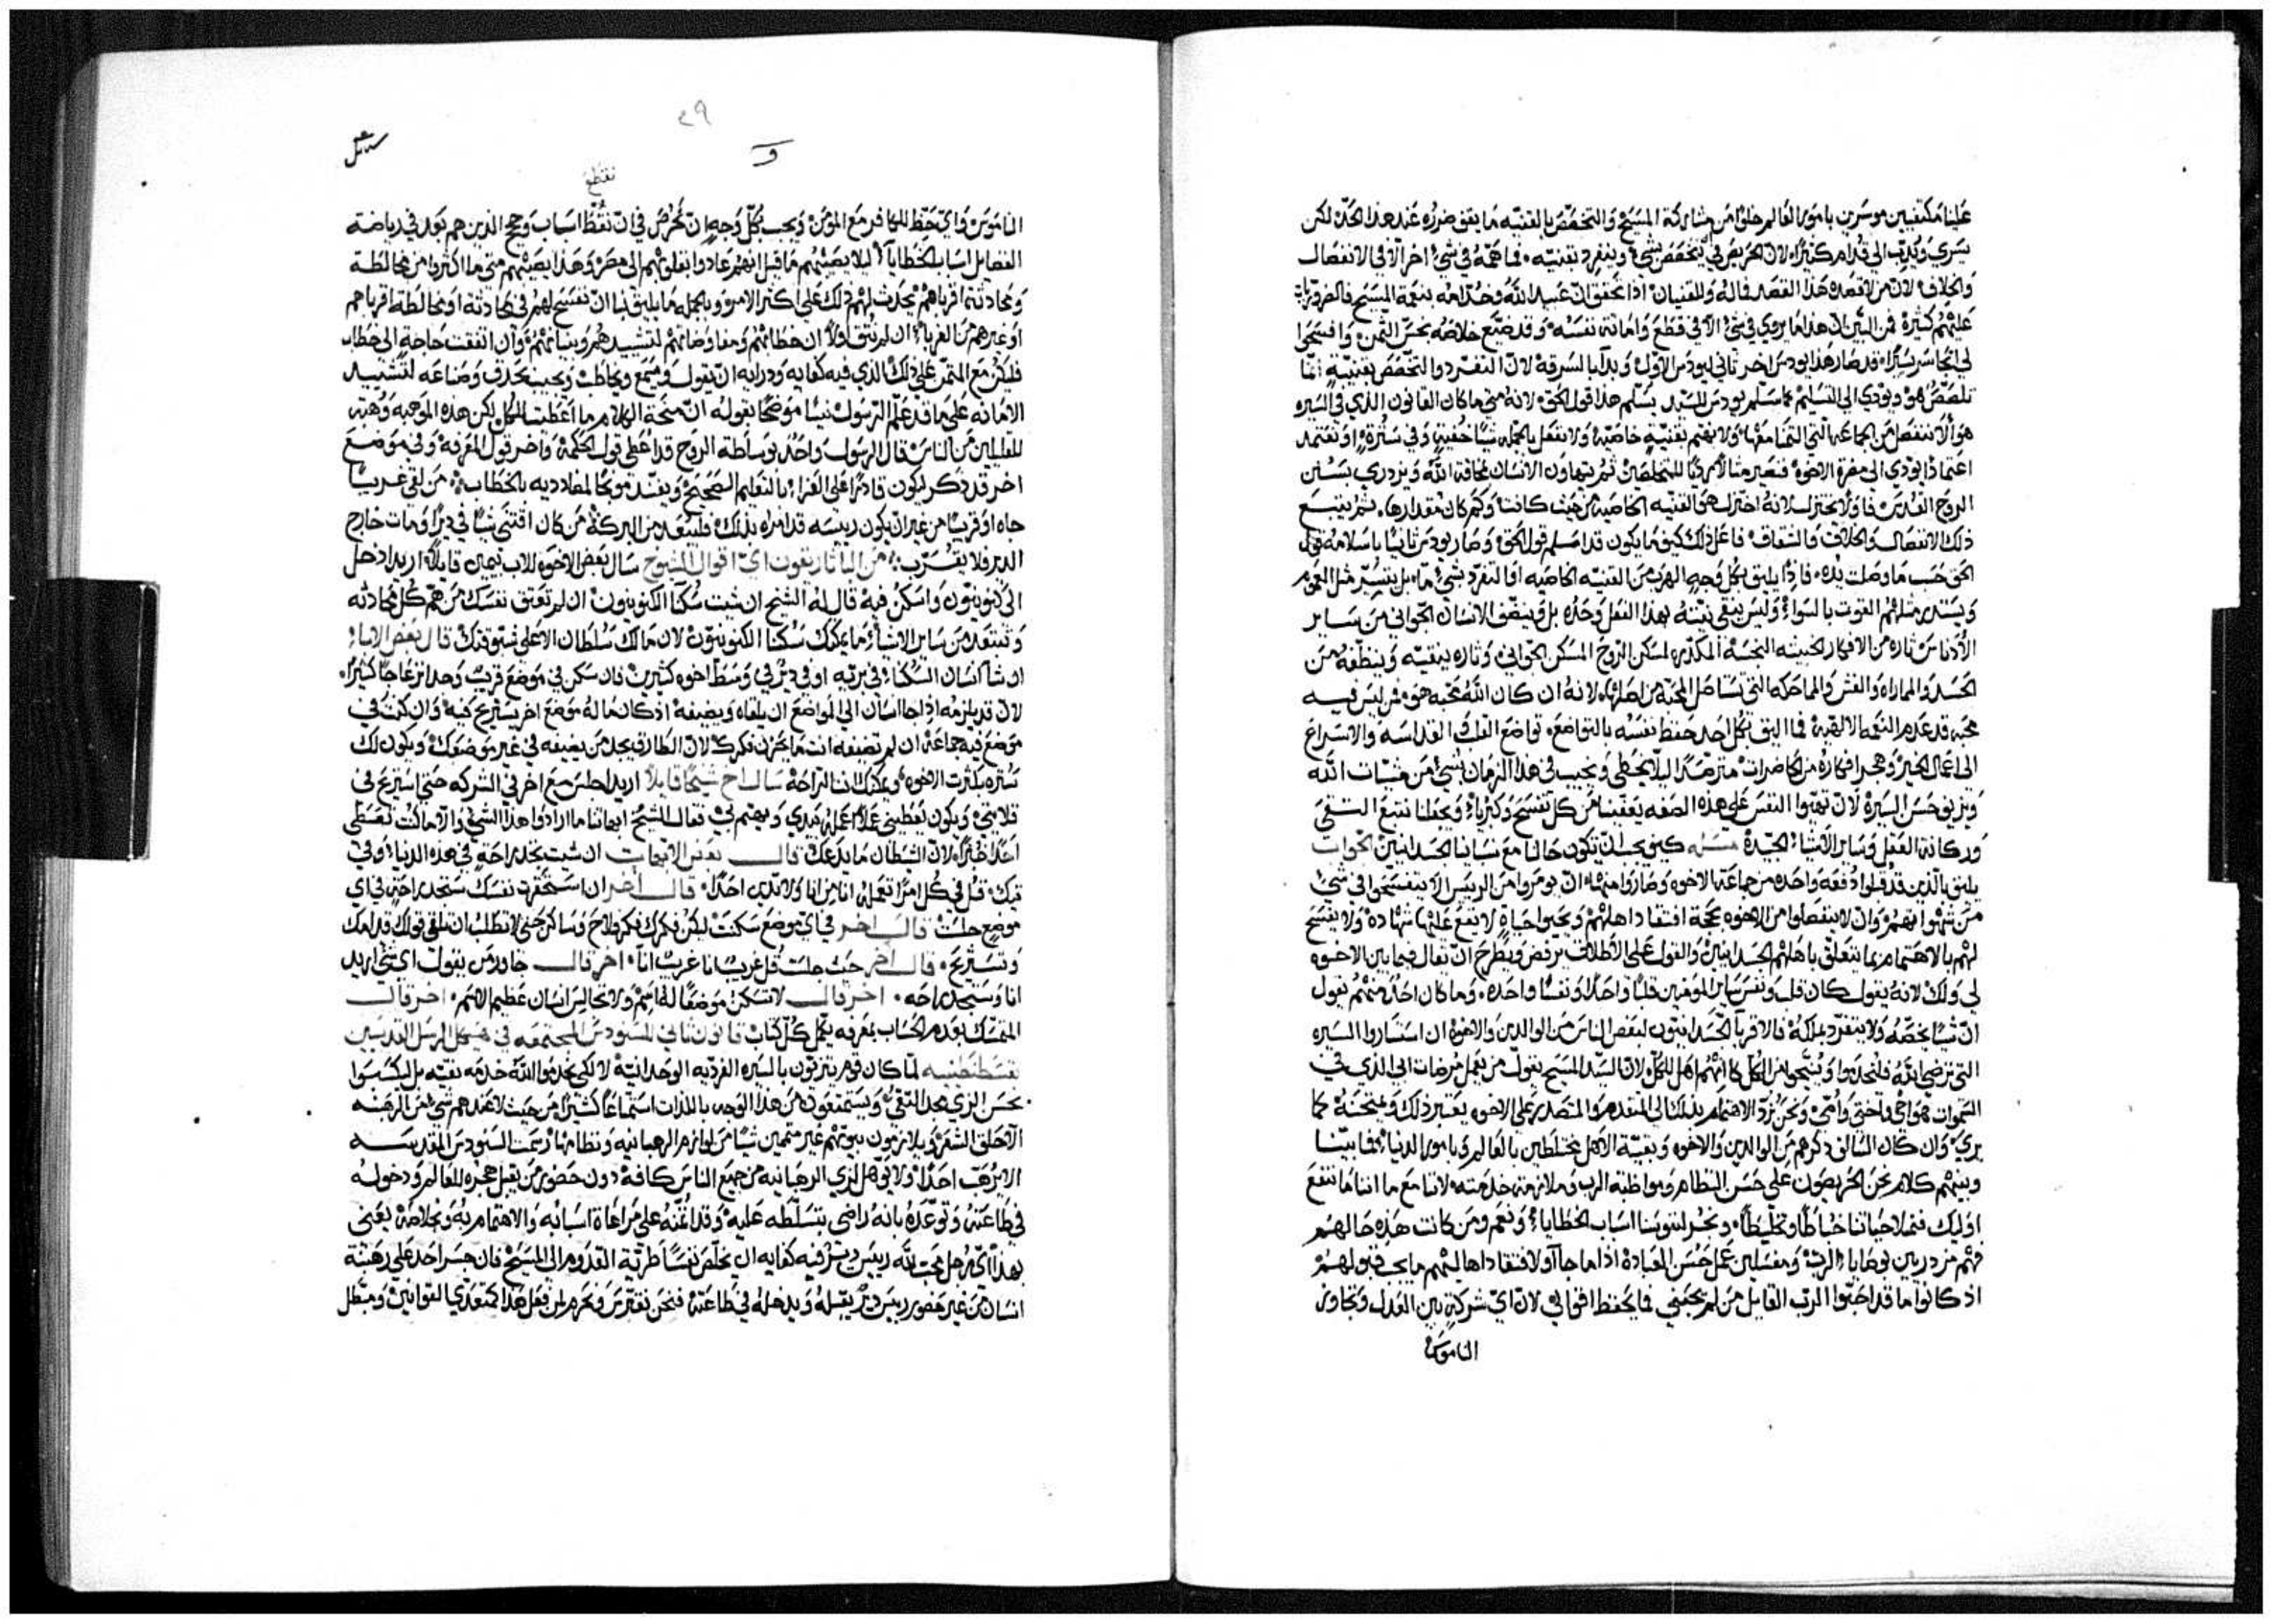 علينا مكتفيين موسرين بامور العالم خلوًا من مشاركة المسيح والتخصّص بالقنيه ما يقف ضرره عند هذا الحدّ لكن
يسري ويدبّ الي قدام كثيرًا لان الحريص في يتخصّص بشيء وينفرد بقنيته فما همّه في شيء اخر الا في الانفصال
والخلاف لان من لا قصده هذا القصد فما له وللقنيان اذا تحقق ان عبيد الله وخدّامه بنعمة المسيح فالضروريات
عليهم كثيرة فمن البيّن ان هذا ما يروي في شيء الا في قطع وامانة نفسه وقد ضيّع خلاصه بخسّ الثمن وافسحوا
لي اتجاسر يسيرًا فقد صار هذا يودس اخر ثاني ليودس الاول وبدا بالسرقة لان التفرد والتخصص بقنيةٍ انما
تلصّصٌ هو ويودي الي التسليم كما سلم يودس للسيد يسلم هذا قول الحق لانه متي ما كان القانون الذي في السيره
هو الا ننفصل من الجماعه التي التمامعها ولا نهتم بقنيةٍ خاصيّه ولا نفعل بالجمله شيًا خفيةً وفي سترةٍ او نعتمد
اعتمادًا يودي الي مضرة الاخوه فنصير مثالًا رديًا للمتخلصين ثم يتهاون الانسان بمخافة الله ويزدري بسنن
الروح القدس فاولًا يختزل لانه اختزل هو القنيه الخاصيه من حيث كانت وكم كان مقدارها. ثم يتبع
ذلك الانفصال والخلاف والشقاق فاعل ذلك كيف ما يكون قد اسلم قول الحق وصار يودس ثانيًا باسلامه قول
الحق حسب ما وصلت يده. فاذًا يليق بكل وجهٍ الهرب من القنيه الخاصيه او التفرد بشيءٍ مّا. بل يتسيّر مثل العموم
ويستد مثلهم القوت بالسواء وليس ينقي بيته بهذا الفعل وحده بل وينظف الانسان الجواني من ساير
الأدناس تاره من الافكار الخبيثه النجسة المكدّره لمسكن الروح المسكن الجواني وتاره ينقيه وينظفه من
الحسد والمماراه والغش والمماحكه التي تستاصل المحبة من اصلها لانه ان كان الله محبه هو فمن ليس فيه
محبه قد عدم النعمه الالهيه فما اليق بكل احد حفظ نفسه بالتواضع. تواضع القلب القداسه والاسراع
الي اعمال الخير وهجر افكاره من الحاضرات مترصّدًا ليلا يخطي ويخيب في هذا الزمان بشيءٍ من مشيات الله
ويزيف حسن السيرة لان تهيوا النفس علي هذه الصفه يعفينا من كل تفسّح وكبرياء ويجعلنا نتبع التقي
وركانة العقل وساير الاشياء الجيدة مسله كيف يجب ان تكون حالنا مع نسباينا الجسدانيين الجواب
يليق بالذين قد قبلوا دفعه واحده من جماعة الاخوه وصاروا منهم ان يومروا من الرييس الا يتفسحوا في شيءٍ
من شهواتهم وان لا ينفصلوا من الاخوه بحجة افتقاد اهلهم ويحيوا حياةٍ لا يقع عليها شهادة ولا يفسح
لهم بالاهتمام بما يتعلق باهلهم الجسدانيين والقول علي الاطلاق يرفض ويطرح ان يقال فيما بين الاخوه
لي ولك لانه يقول كان قلب ونفس ساير المومنين قلبًا واحدًا ونفسًا واحده. وما كان احد منهم يقول
ان شيًا يخصّه ولا يتفرد بملكه فالاقربا الجسدانيون لبعض الناس من الوالدين والاخوة ان استساروا السيره
التي ترضي الله فليخدموا ويبجّلوا من الكل كانهم اهل للكل لان السيد المسيح يقول من يعمل مرضات ابي الذي في
السموات هو اخي واختي وامي ونحن نردّ الاهتمام بذلك الي المتقدم والمتصدر علي الاخوه يعتبر ذلك ويمتحنه كما
يري وان كان السالف ذكرهم من الوالدين والاخوه وبقيّة الاهل مختلطين بالعالم وبامور الدنيا فما بيننا
وبينهم كلام نحن الحريصون علي حسن النظام ومواظبة الرب وملازمة خدمته لاننا مع ما اننا ما ننفع
اوليك فنملا حياتنا خباطًا وتخليطًا. ونجر لنفوسنا اسباب الخطايا ونعم ومن كانت هذه حالهم
فهم مزدريين بوصايا الرب ومفشلين عمل حسن العبادة اذا ما جاوا لافتقاد اهاليهم ما يجب قبولهم
اذ كانوا ما قد احبّوا الرب القايل من لم يحبني فما يحفظ اقوالي لان ايّ شركةٍ بين العدل وتجاوز
الناموس
٢٩
و
نقتطع
الناموس وايّ حظ للكافر مع المومن ويجب بكل وجه ان نحرص في ان نقطّ اسباب وحجج الذين هم بعد في رياضة
الفضايل اسباب الخطايا ليلا يصيبهم ما قيل انهم عادوا بقلوبهم الي مصر وهذا يصيبهم متي ما اكثروا من مخالطة
ومحادثة اقرباهم يحدث لهم ذلك علي اكثر الامر وبالجمله ما يليق بنا ان نفسح لهم في محادثة او مخالطة اقرباهم
او غيرهم من الغرباء ان لم نثق اولًا ان خطابهم ومفاوضاتهم لتشييدهم وبنيانهم وان اتفقت حاجة الي خطاب
فليكن مع المتمن علي ذلك الذي فيه كفايه ودرايه ان يقول ويسمع ويخاطب ويجيب بحذق وصناعه لتشييد
الامانه علي ما قد علم الرسول نبينًا موضحًا بقوله ان منحة الكلام ما اعطيت للكل لكن هذه الموهبه وُهبت
للقليلين من الناس قال الرسول واحد بوساطة الروح قد اعطي قول الحكمة واخر قول المعرفه وفي موضع
اخر قد ذكر ليكون قادرًا علي العزاء بالتعليم الصحيح ويفند موبخًا لمضادديه بالخطاب من لقي غريبًا
جاه او قريبًا من غير ان يكون رييسه قد امره بذلك فليبعد من البركة من كان اقتني شيًا في ديرٍ او مات خارج
الدير فلا يقرب من الماثاريقون اي اقوال الشيوخ سال بعض الاخوه للاب بيمين قايلًا اريد ادخل
الي كنوبيون واسكن فيه قال له الشيخ ان شيت سكنا الكنوبيون ان لم تعتق نفسك من همّ كل محادثه
وتبتعد من ساير الاشياء ما يمكنك سكنا الكنوبيون لان ما لك سلطان الا علي فسقوقتك قال بعض الاباء
ان شا انسان السكنا في بريه او في ديرٍ في وسط اخوه كثيرين فان سكن في موضع قريب وحد انزعاجًا كثيرًا.
لان قد يلزمه اذا جا انسان الي المواضع ان يلقاه ويضيفه اذ كان ما له موضع اخر يستريح فيه وان كنت في
موضع فيه جماعة ان لم تضيفه انت ما يحزن فكرك لان الطارق يجد من يضيفه في غير موضعك ويكون لك
ستره بكثرت الاخوه ويمكنك نت الراحة سال اخ شيخًا قايلًا اريد اجلس مع اخ في الشركه حتي استريح في
قلايتي ويكون يعطيني عملًا اعمله بيدي ويهتم بي فقال الشيخ ابهاتنا ما ارادوا هذا الشي والا ما كنت تعطي
احدًا خبزًا لان الشيطان ما يدعك قال بعض الابهات ان شيت تجد راحة في هذه الدنيا وفي
تيك قل في كل امرٍ تعمله انا من انا ولا تدين احدًا. قال اخر ان استحقرت نفسك ستجد راحةٍ في اي
موضع جلست قال اخر في اي موضع سكنت ليكن فكرك فكر فلاح وساكن جني لا تطلب ان تلقي قولك قدامك
وتستريح. قال اخر حيث جلست قل غريبًا انا غريب انا. اخر قال جاورس بقول اي شي اريد
انا وستجد راحه. اخر قال لا تسكن موضعًا له اسم ولا تجالس انسان عظيم الاسم. اخر قال
المتمسك بعدم الحساب بمعرفه يكمل كل كتاب قانون ثاني للسنودس المجتمعه في هيكل الرسل القديسين
بقسطنطينيه لما كان قوم يتزيّون بالسيره الفرديه الوحدانية لا لكي يخدموا الله خدمه نقيه بل ليكسبوا
بحسن الزي مجد التقي ويستمتعون من هذا الوجه باللذات استمتاعًا كثيرًا من حيث لا عندهم شي من الرهبنه
الا حلق الشعر ويلازمون بيوتهم غير متممين شيًا من لوازم الرهبانيه ونظامها رسمت السنودس المقدسه
الا يُرهّب احدًا ولا يوهل لزي الرهبانيه من جميع الناس كافة دون حضور من يقبل هجره للعالم ودخوله
في طاعته وتوعّده بانه راضي بتسلّطه عليه وقد ائتمنه علي مراعاة اسبابه والاهتمام به وبخلاصه يعني
بهذا اي رجل محبّ لله رييس دير فيه كفايه ان يخلّص نفسًا طريّة القدوم الي المسيح فان جسر احد علي رهبنة
انسان من غير حضور رييس ديرٍ يقبله ويدخله في طاعته فنحن نقترس ونحرم لمن فعل هذا كمتعدّي القوانين ومبطل